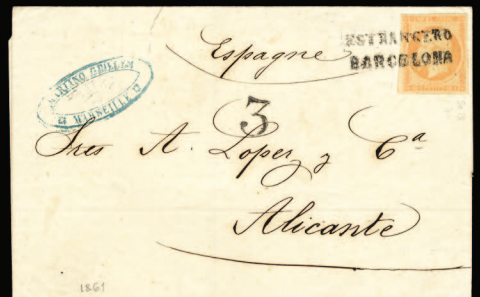 Espagne
ESTRANGERO
BARCELONA
MARSEILLE
3
Sres A. Lopez y Cª
Alicante
1861